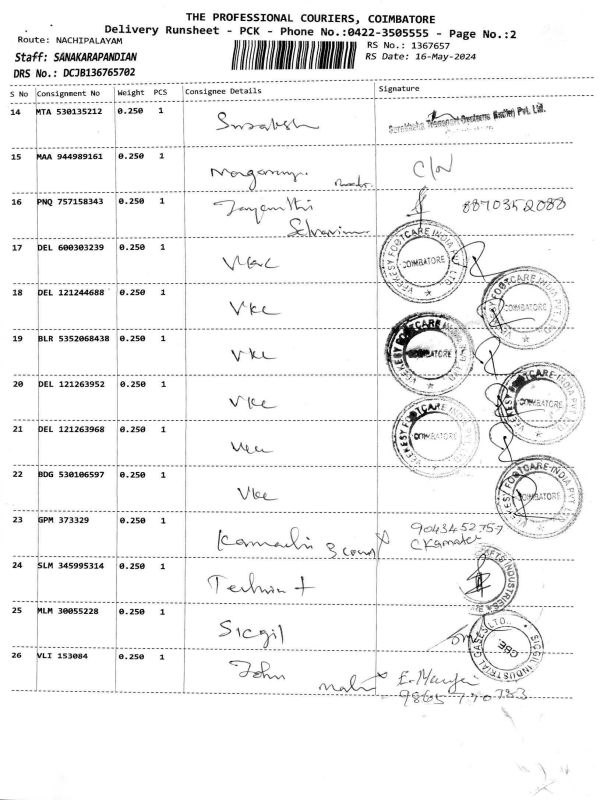 THE PROFESSIONAL COURIERS, COIMBATORE
Delivery Runsheet - PCK - Phone No.:0422-3505555 - Page No.:2
Route: NACHIPALAYAM
RS No.: 1367657
Staff: SANAKARAPANDIAN
RS Date: 16-May-2024
DRS No.: DCJB136765702
S No Consignment No Weight PCS Consignee Details Signature
14 MTA 530135212 0.250 1
15 MAA 944989161 0.250 1 C/N
16 PNQ 757158343 0.250 1 Jayanthi 8870352088
17 DEL 600303239 0.250 1
VEEKESY FOOTCARE INDIA PVT LTD COIMBATORE
18 DEL 121244688 0.250 1 VKC
VEEKESY FOOTCARE INDIA PVT LTD COIMBATORE
19 BLR 5352068438 0.250 1 VKC
VEEKESY FOOTCARE INDIA PVT LTD COIMBATORE
20 DEL 121263952 0.250 1 VKC
VEEKESY FOOTCARE INDIA PVT LTD COIMBATORE
21 DEL 121263968 0.250 1 VKC
VEEKESY FOOTCARE INDIA PVT LTD COIMBATORE
22 BDG 530106597 0.250 1 VKC
VEEKESY FOOTCARE INDIA PVT LTD COIMBATORE
23 GPM 373329 0.250 1 Kamachi 9043452757
24 SLM 345995314 0.250 1
INDUSTRIES
25 MLM 30055228 0.250 1 Sicgil
SICGIL INDUSTRIAL GASES LTD., CBE
26 VLI 153084 0.250 1 John
9865790783